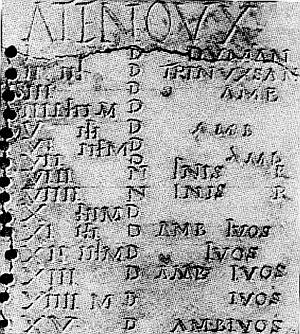 ATENOVX
D DVMAN
III D TRINVXSAN
III D AMB
IIII M D
V D AMB
VI M D
VII D AMB
VIII N INIS R
VIIII N INIS R
X M D
XI D AMB IVOS
XII M D IVOS
XIII D AMB IVOS
XIIII M D IVOS
XV D AMBIVOS